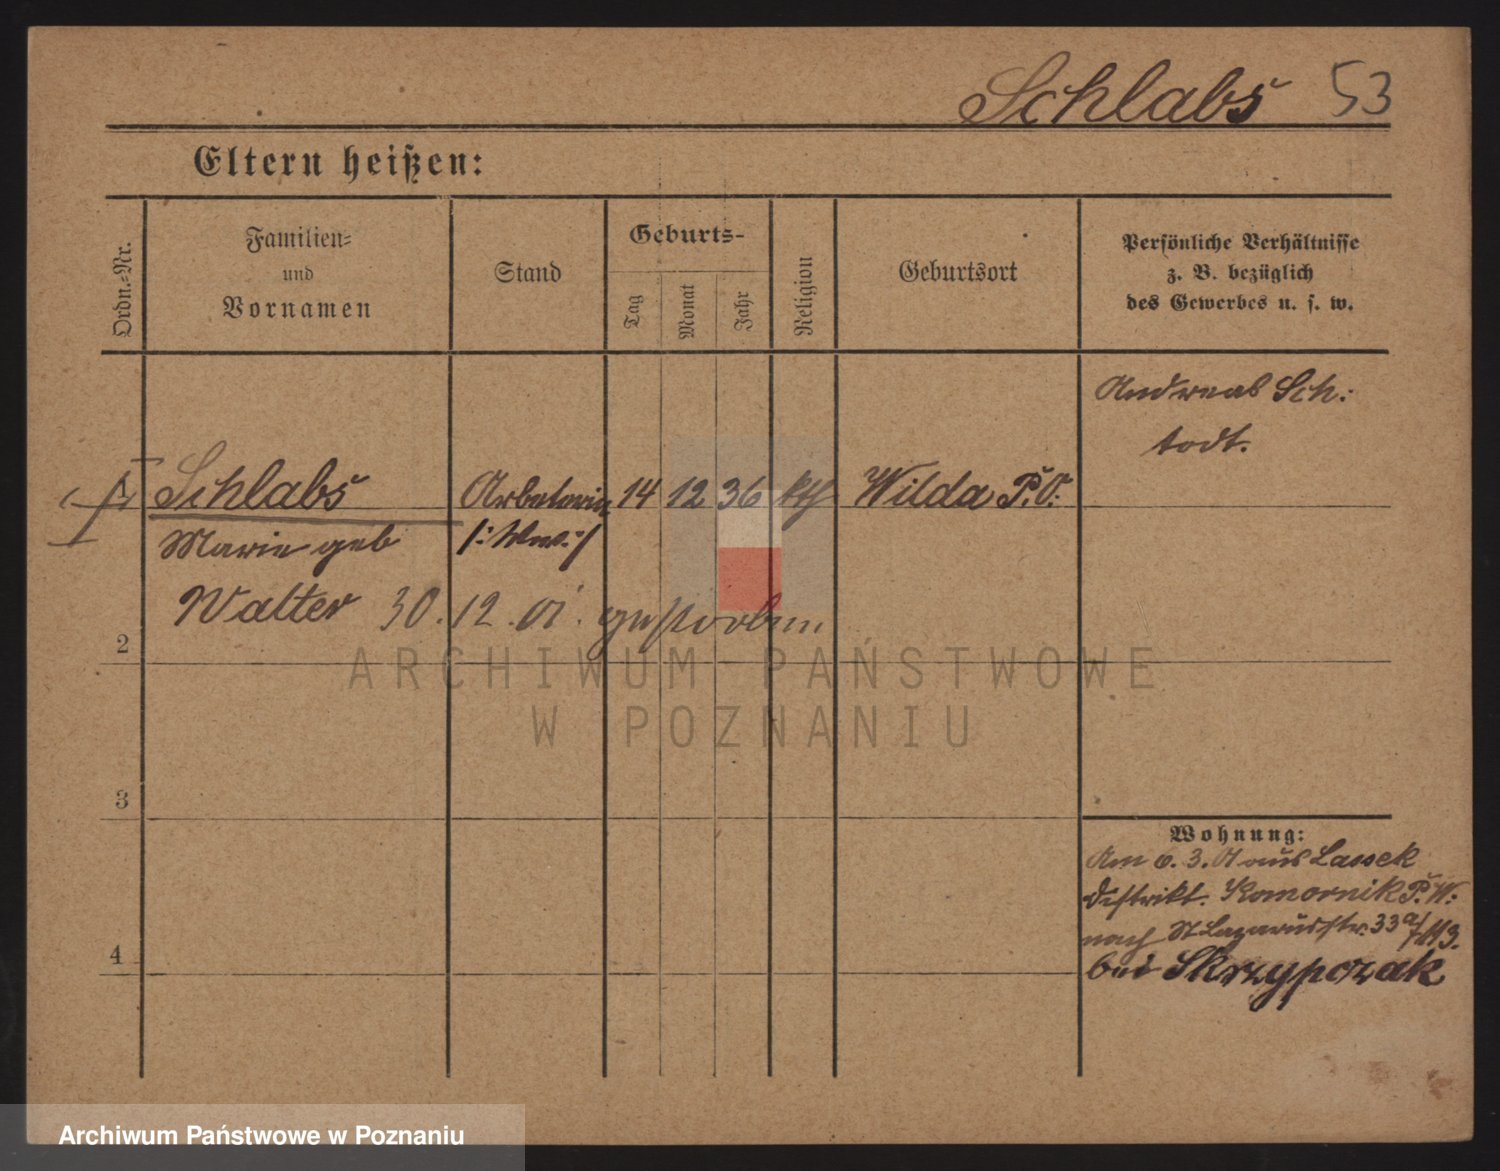 Schlabs 53
Eltern heißen:
Ordn.-Nr.
Familien-
und
Vornamen
Stand
Geburts-
Tag
Monat
Jahr
Religion
Geburtsort
Persönliche Verhältnisse
z. B. bezüglich
des Gewerbes u. s. w.
Andreas Sch:
todt.
Schlabs Arbeterin 14 12 36 kth Wilda P. O:
Marie geb /: Ww. :/
Walter 30. 12. 01. gestorben
2
3
4
Wohnung:
Am 6. 3. 01 aus Lassek
Distrikt. Komornik P. W:
nach St Lazarusstr. 33a/
bei Skrzypczak
ARCHIWUM PAŃSTWOWE
W POZNANIU
Archiwum Państwowe w Poznaniu